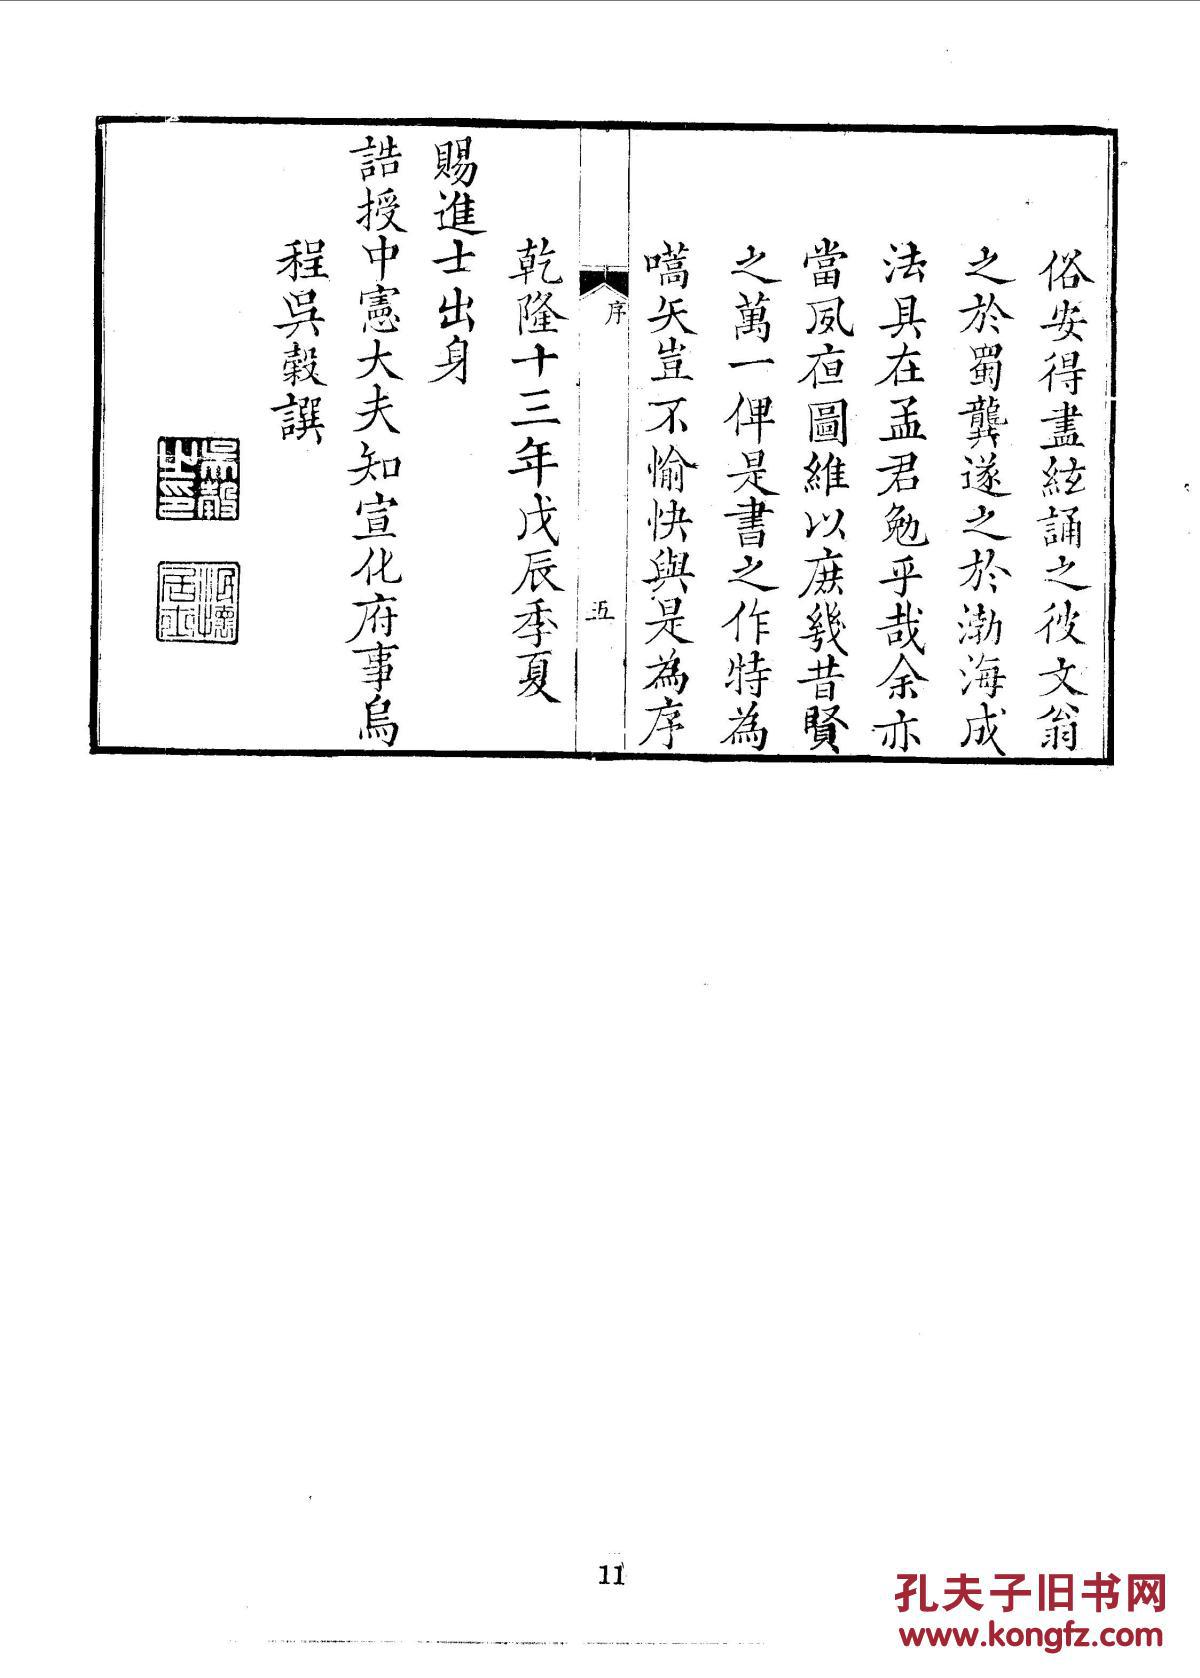 俗安得盡絃誦之彼文翁
之於蜀龔遂之於渤海成
法具在孟君勉乎哉余亦
當夙夜圖維以庶幾昔賢
之萬一俾是書之作特為
嚆矢豈不愉快與是為序
序
五
乾隆十三年戊辰季夏
賜進士出身
誥授中憲大夫知宣化府事烏
程吳穀譔
吳穀之印
11
孔夫子旧书网
www.kongfz.com